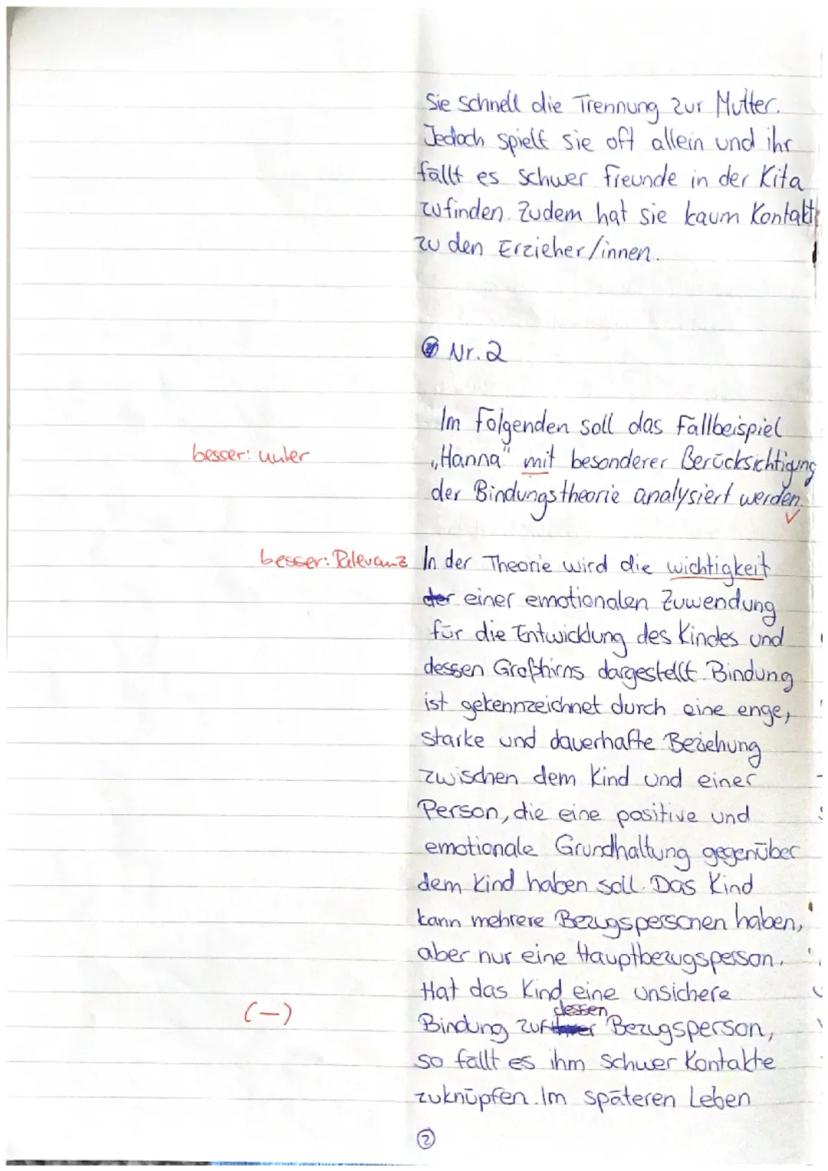 Sie schnell die Trennung zur Mutter.
Jedoch spielt sie oft allein und ihr
fällt es schwer freunde in der Kita
zufinden. Zudem hat sie kaum Kontakt
zu den Erzieher/innen.
Nr. 2
Im Folgenden soll das Fallbeispiel
besser: unter „Hanna" mit besonderer Berücksichtigung
der Bindungstheorie analysiert werden. ✓
besser: Relevanz In der Theorie wird die wichtigkeit
der einer emotionalen Zuwendung
für die Entwicklung des Kindes und
dessen Großhirns dargestellt. Bindung
ist gekennzeichnet durch eine enge,
starke und dauerhafte Beziehung
zwischen dem Kind und einer
Person, die eine positive und
emotionale Grundhaltung gegenüber
dem Kind haben soll. Das Kind
kann mehrere Bezugspersonen haben,
aber nur eine Hauptbezugsperson.
Hat das Kind eine unsichere
(-) Bindung zur dessen Bezugsperson,
so fällt es ihm schwer Kontakte
zuknüpfen. Im späteren Leben
2